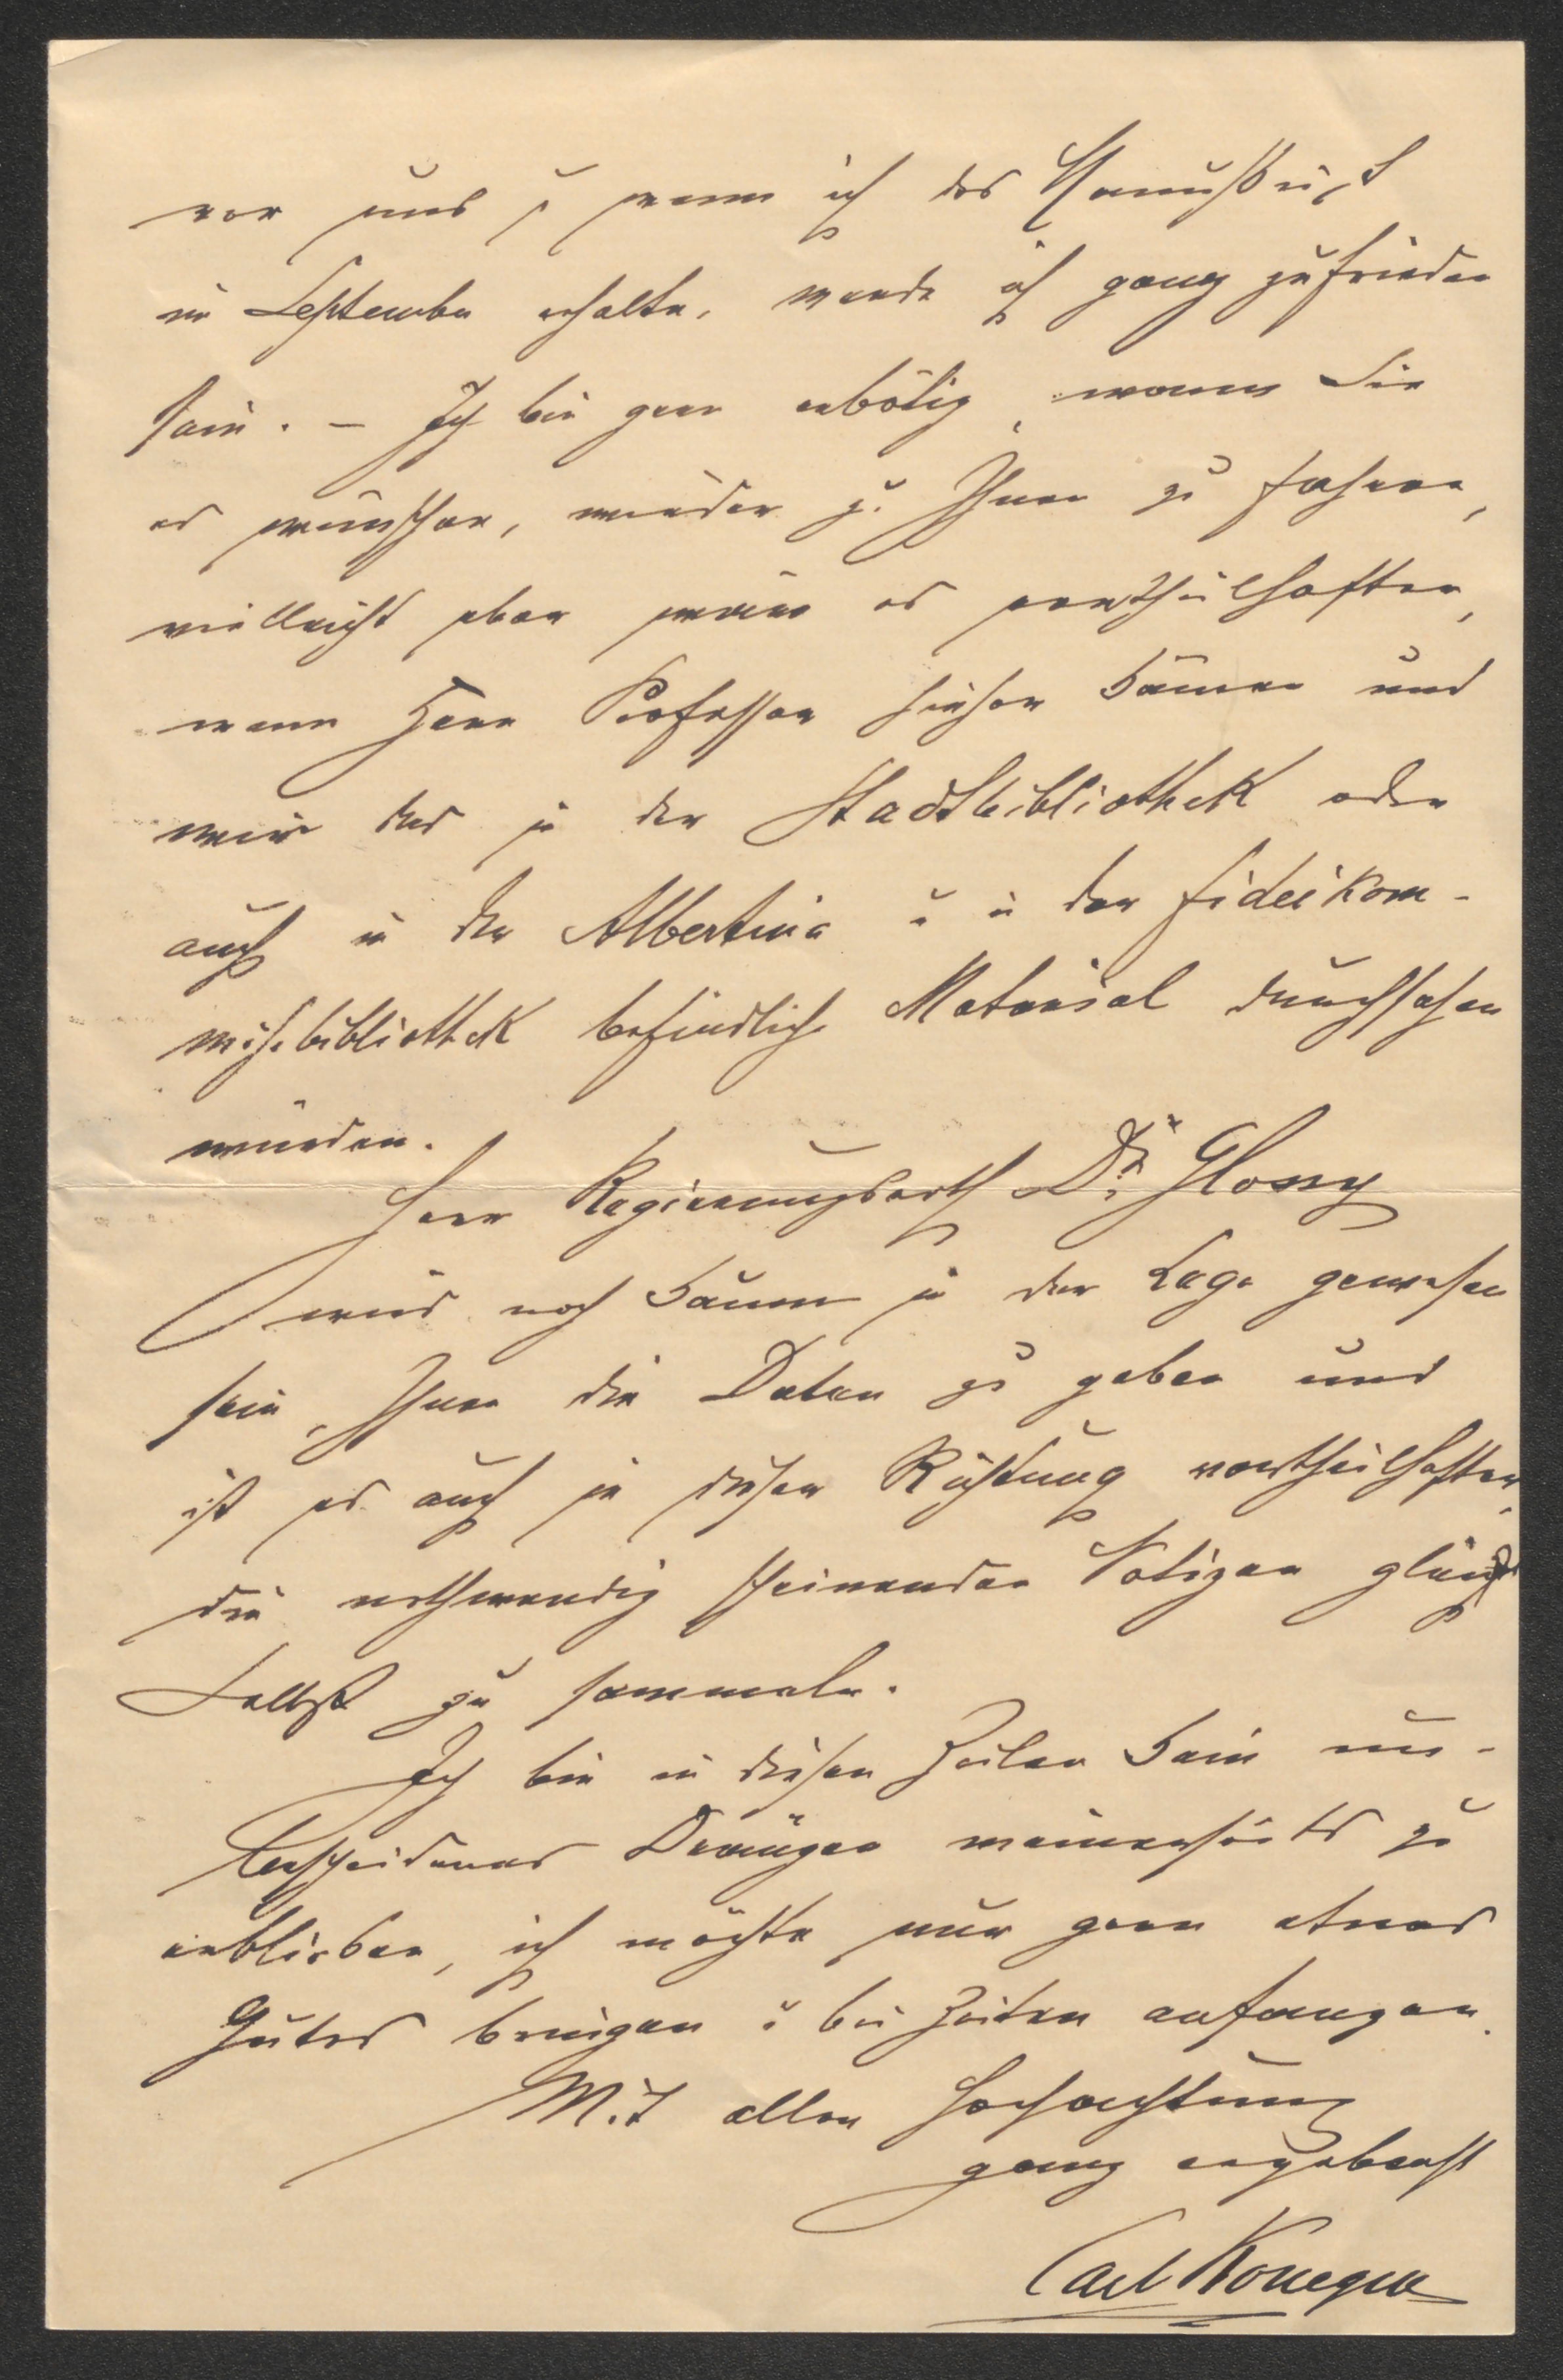 vor uns u wenn ich das Manuskript
im September erhalte, werde ich ganz zufrieden
sein. – Ich bin gern erbötig, wann Sie
es wünschen, wieder zu Ihnen zu fahren,
vielleicht aber wäre es vortheilhafter,
wenn Herr Professor hieher kämen und
mir das in der Stadtbibliothek oder
auch in der Albertina u in der Fideikom-
mißbibliothek befindliche Material durchsehen
würden.
Herr Regierungsrath Dr. Glossy
wird noch kaum in der Lage gewesen
sein, Ihnen die Daten zu geben und
ist es auch in dieser Richtung vortheilhafter,
die nothwendig scheinenden Notizen gleich
selbst zu sammeln.
Ich bitte in diesen Zeilen kein un-
bescheidenes Drängen meinerseits zu
erblicken, ich möchte nur gern etwas
Gutes bringen u bei Zeiten anfangen.
Mit aller Hochachtung
ganz ergebenst
Carl Konegen